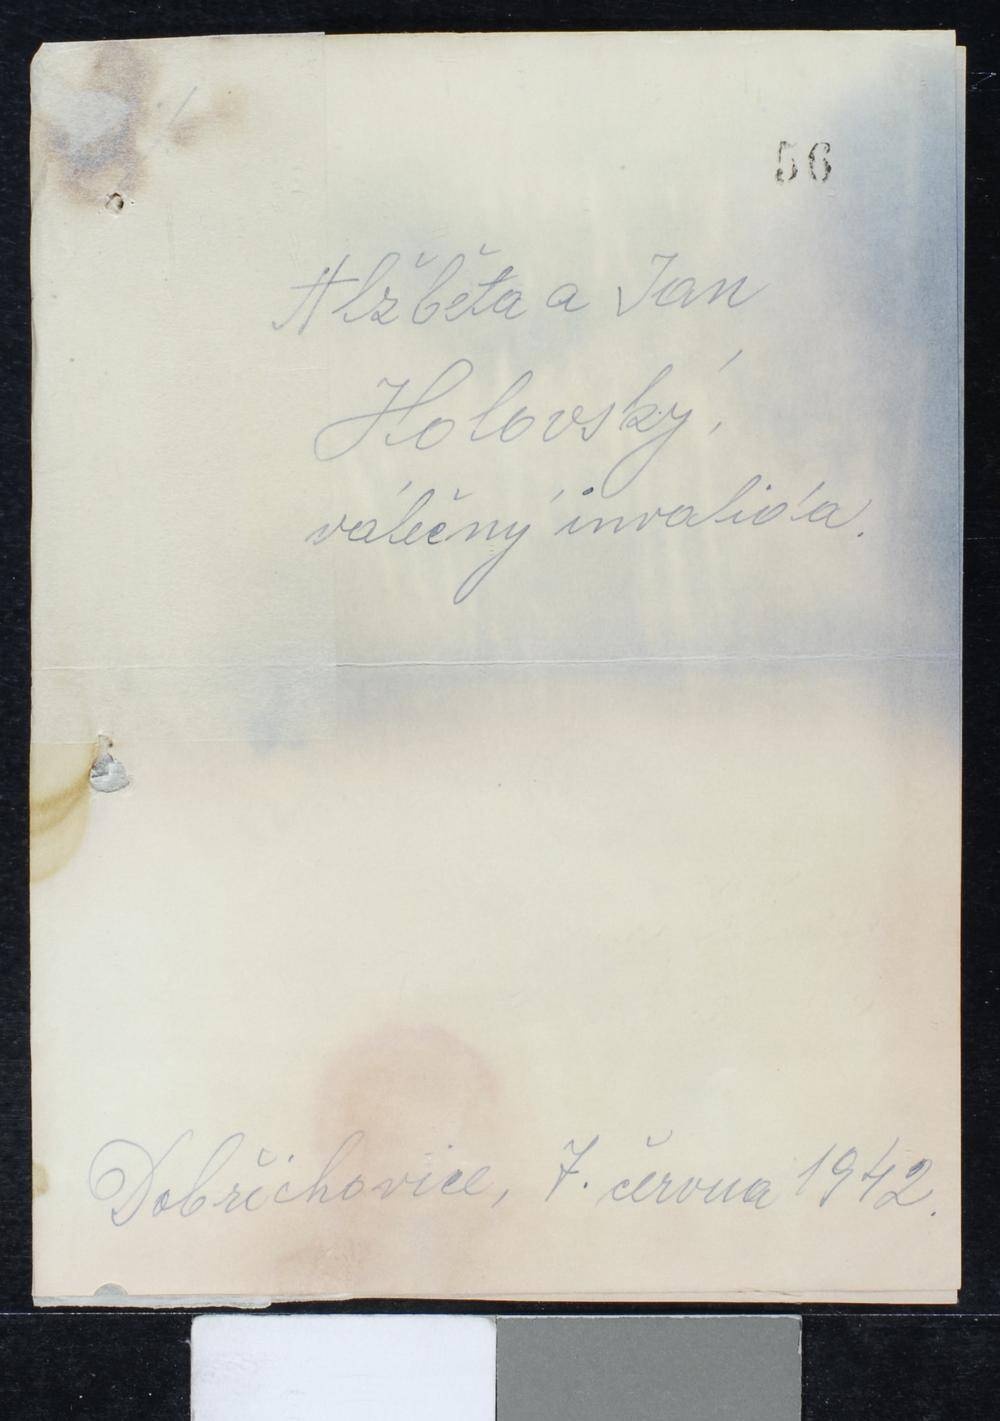 56
Alžběta a Jan
Holovský,
válečný invalida.
Dobřichovice, 7. června 1942.